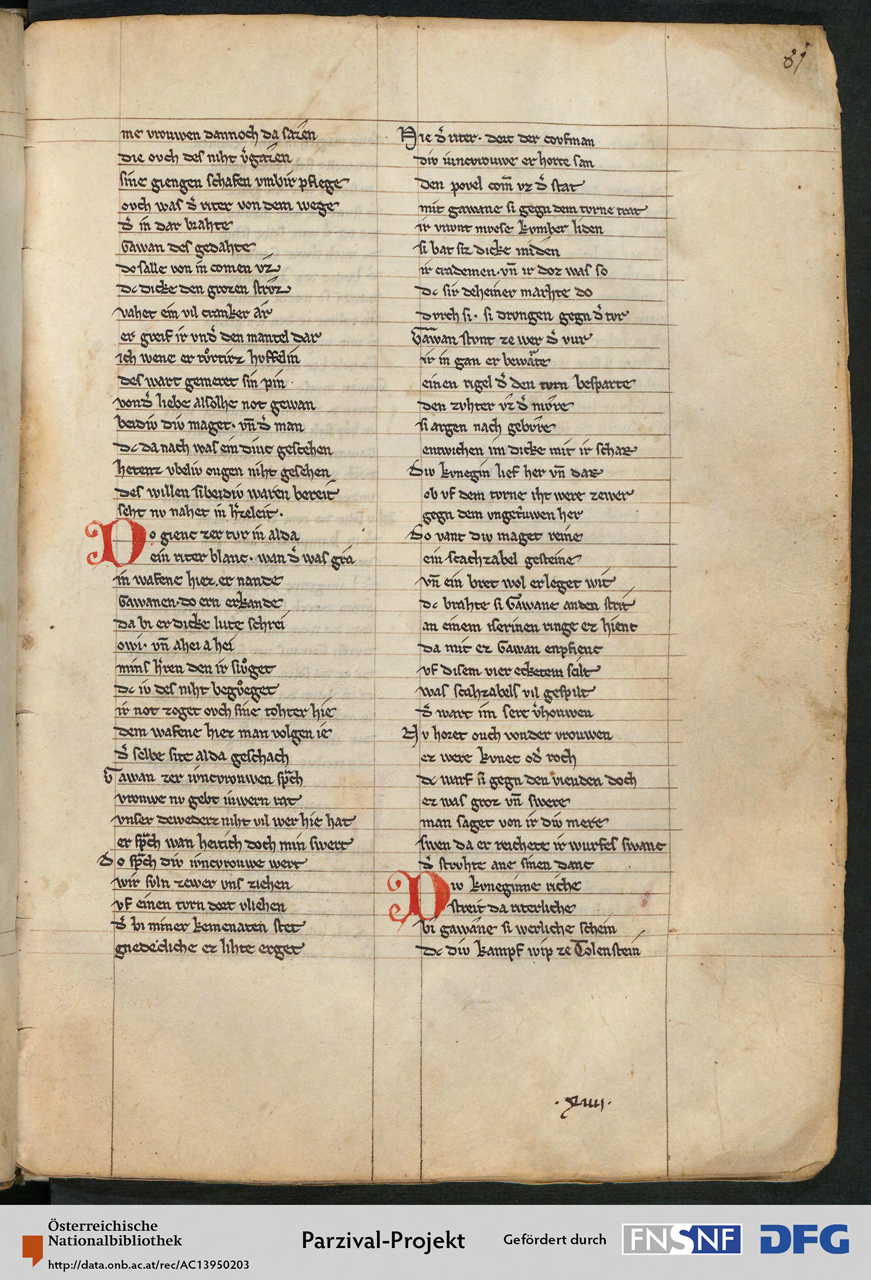 81
me vrouwen dannoch da sazen
die ovch des niht v͛gazen
sine giengen schafen vmbir pflege
ovch was d͛ riter von dem wege
d͛ in dar brahte
Gawan des gedahte
do salle von in comen vz
dc dicke den grozen struz
vahet ein vil cranker ar
er greif ir vnd͛ den mantel dar
ich wene er růrtirz huffelin
des wart gemeret sin pin
vond͛ liebe alsolhe not gewan
beidiv div maget. vn̄ d͛ man
dc da nach was ein dinc geschehen
hetentz vbeliv ougen niht gesehen
des willen si beidiv waren bereit
seht nv nahet in h͛zeleit.
Do gienc zer tur in alda
ein riter blanc. wan d͛ was gra
in wafene hiez. er nande
Gawanen. do ern erkande
da bi er dicke lute schrei
owi. vn̄ ahei a hei
mins h͛ren den ir slůget
dc iv des niht begnůget
ir not zoget ovch sine tohter hie
dem wafene hiez man volgen ie
d͛ selbe site alda geschach
Gawan zer ivncvrouwen sp͛ch
vrouwe nv gebt iuwern rat
vnser dewederz niht vil wer hie hat
er sp͛ch wan hetich doch min swert
Do sp͛ch div ivncvrouwe wert
wir suln zewer vns ziehen
vf einen turn dort vliehen
d͛ bi miner kemenaten stet
gnedecliche ez lihte erget
Hie d͛ riter. dort der coufman
div iuncvrouwe er horte san
den povel com̄ vz d͛ stat
mit gawane si gegn dem turne trat
ir vriunt muose kumber liden
si bat siz dicke miden
ir cradem en. vn̄ ir doz was so
dc sir deheiner marhte do
Durch si. si drungen gegn d͛ tur
Gawan stunt ze wer d͛ vur
ir in gan er bewarte
einen rigel d͛ den turn besparte
den zuhter vz d͛ mure
si argen nach gebure
entwichen im dicke mit ir schar
Div kunegin lief her vn̄ dar
ob vf dem turne iht were zewer
gegn dem ungetruwen her
Do vant div maget reine
ein scachzabel gesteine
vn̄ ein bret wol erleget wit
dc brahte si Gawane anden strit
an einem iserinen ringe ez hienc
da mit ez Gawan enpfienc
vf disem vier eckeTem scilt
was scahzabels vil gespilt
d͛ wart im sere v͛houwen
Nv horet ouch vonder vrouwen
ez were kunec od͛ roch
dc warf si gegn den vienden doch
ez was groz vn̄ swere
man saget von ir div mere
swen da er reichete ir wurfes swanc
d͛ struhte ane sinen danc
Div kuneginne riche
streit da riterliche
bi gawane si werliche schein
dc div kampf wip ze Tolenstein
.xiiii.
Österreichische
Nationalbibliothek
http://data.onb.ac.at/rec/AC13950203
Parzival-Projekt
Gefördert durch
FNSNF
DFG